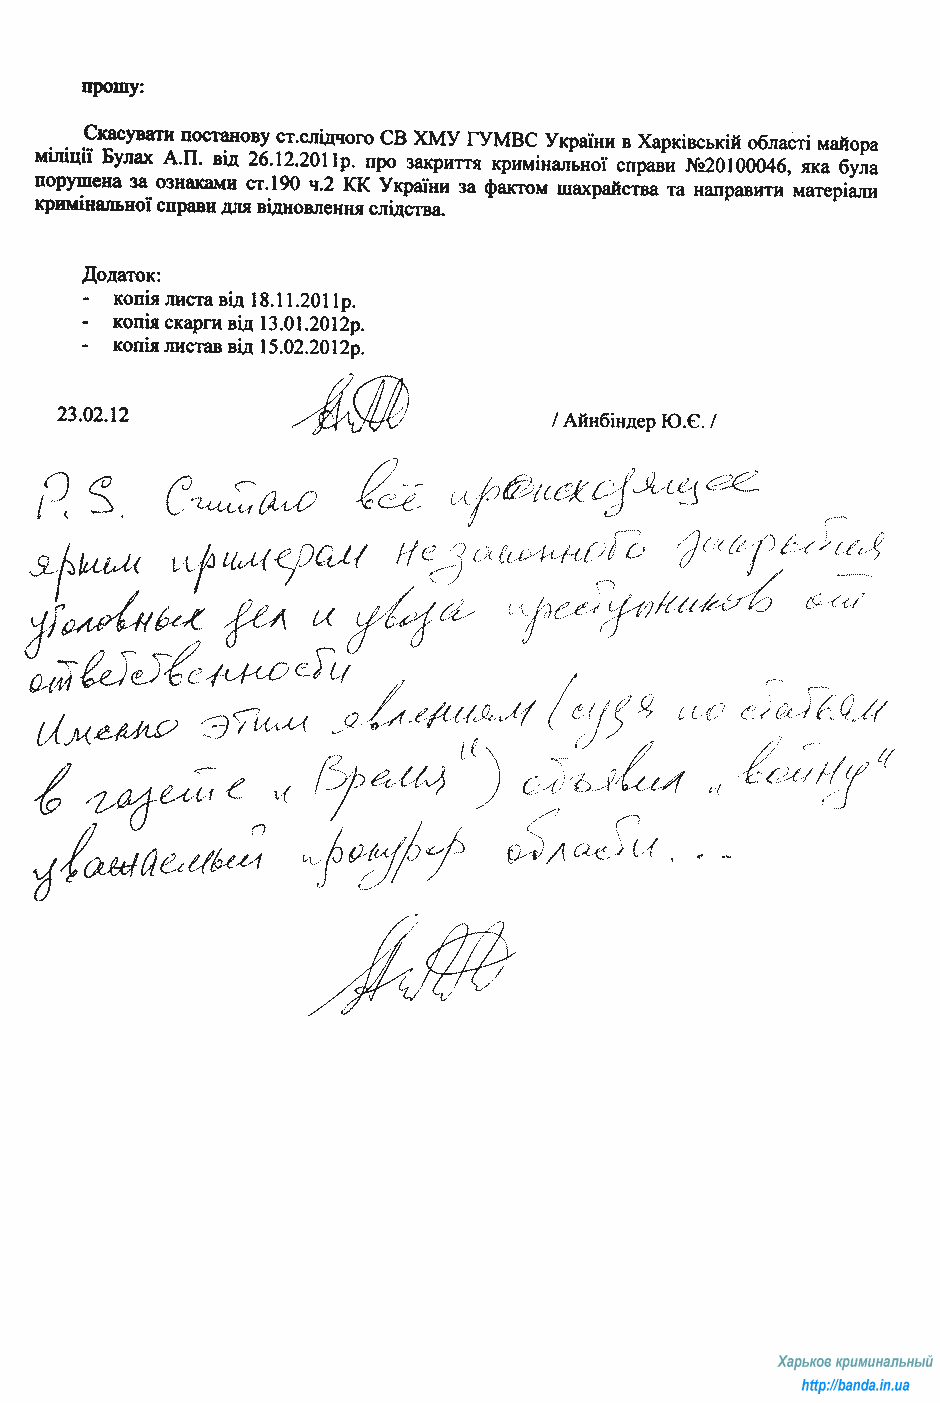 прошу:
Скасувати постанову ст.слідчого СВ ХМУ ГУМВС України в Харківській області майора
міліції Булах А.П. від 26.12.2011р. про закриття кримінальної справи №20100046, яка була
порушена за ознаками ст.190 ч.2 КК України за фактом шахрайства та направити матеріали
кримінальної справи для відновлення слідства.
Додаток:
- копія листа від 18.11.2011р.
- копія скарги від 13.01.2012р.
- копія листав від 15.02.2012р.
23.02.12 / Айнбіндер Ю.Є. /
P.S. Считаю всё происходящее
ярким примером незаконного закрытия
уголовных дел и увода преступников от
ответственности
Именно этим явлениям (судя по статьям
в газете „Время") объявил „войну"
уважаемый прокурор области...
Харьков криминальный
http://banda.in.ua